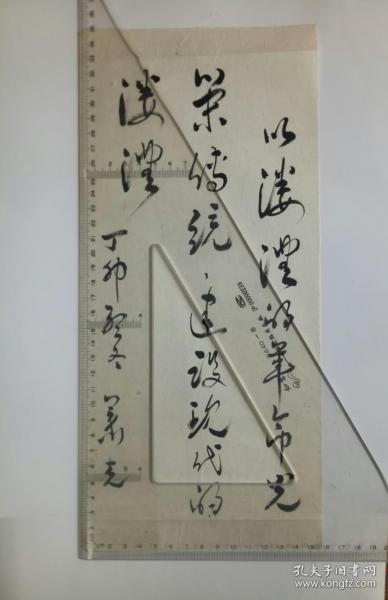 以溇澧的革命光
荣传统，建设现代的
溇澧
丁卯 冬 萧克
孔夫子旧书网
www.kongfz.com